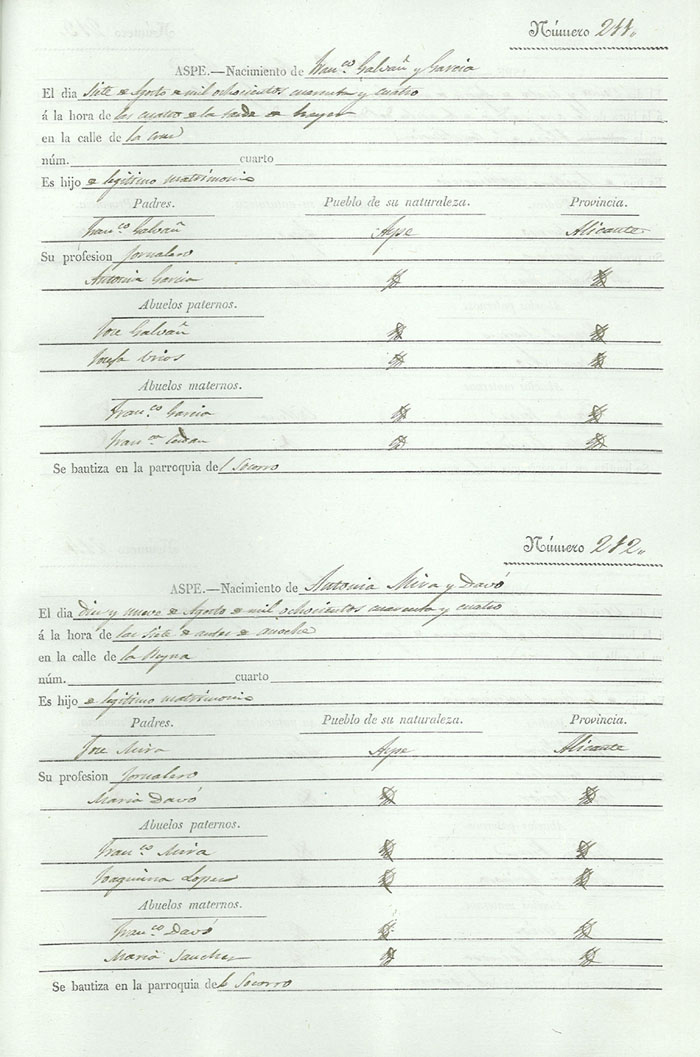 Número 211.
ASPE.—Nacimiento de Fran.co Galvañ y Garcia
El dia siete de Agosto de mil ochocientos cuarenta y cuatro
á la hora de las cuatro de la tarde de
en la calle de la Cruz
núm. cuarto
Es hijo de legitimo matrimonio
Padres. Pueblo de su naturaleza. Provincia.
Fran.co Galvañ Aspe Alicante
Su profesion Jornalero
Antonia Garcia
Abuelos paternos.
Jose Galvañ
Josefa
Abuelos maternos.
Fran.co Garcia
Fran.ca
Se bautiza en la parroquia del Socorro
Número 212.
ASPE.—Nacimiento de Antonia Mira y Davó
El dia diez y nueve de Agosto de mil ochocientos cuarenta y cuatro
á la hora de las siete de antes de anoche
en la calle de la Reyna
núm. cuarto
Es hijo de legitimo matrimonio
Padres. Pueblo de su naturaleza. Provincia.
Jose Mira Aspe Alicante
Su profesion Jornalero
Maria Davó
Abuelos paternos.
Fran.co Mira
Joaquina Lopez
Abuelos maternos.
Fran.co Davó
Maria Sanchez
Se bautiza en la parroquia del Socorro